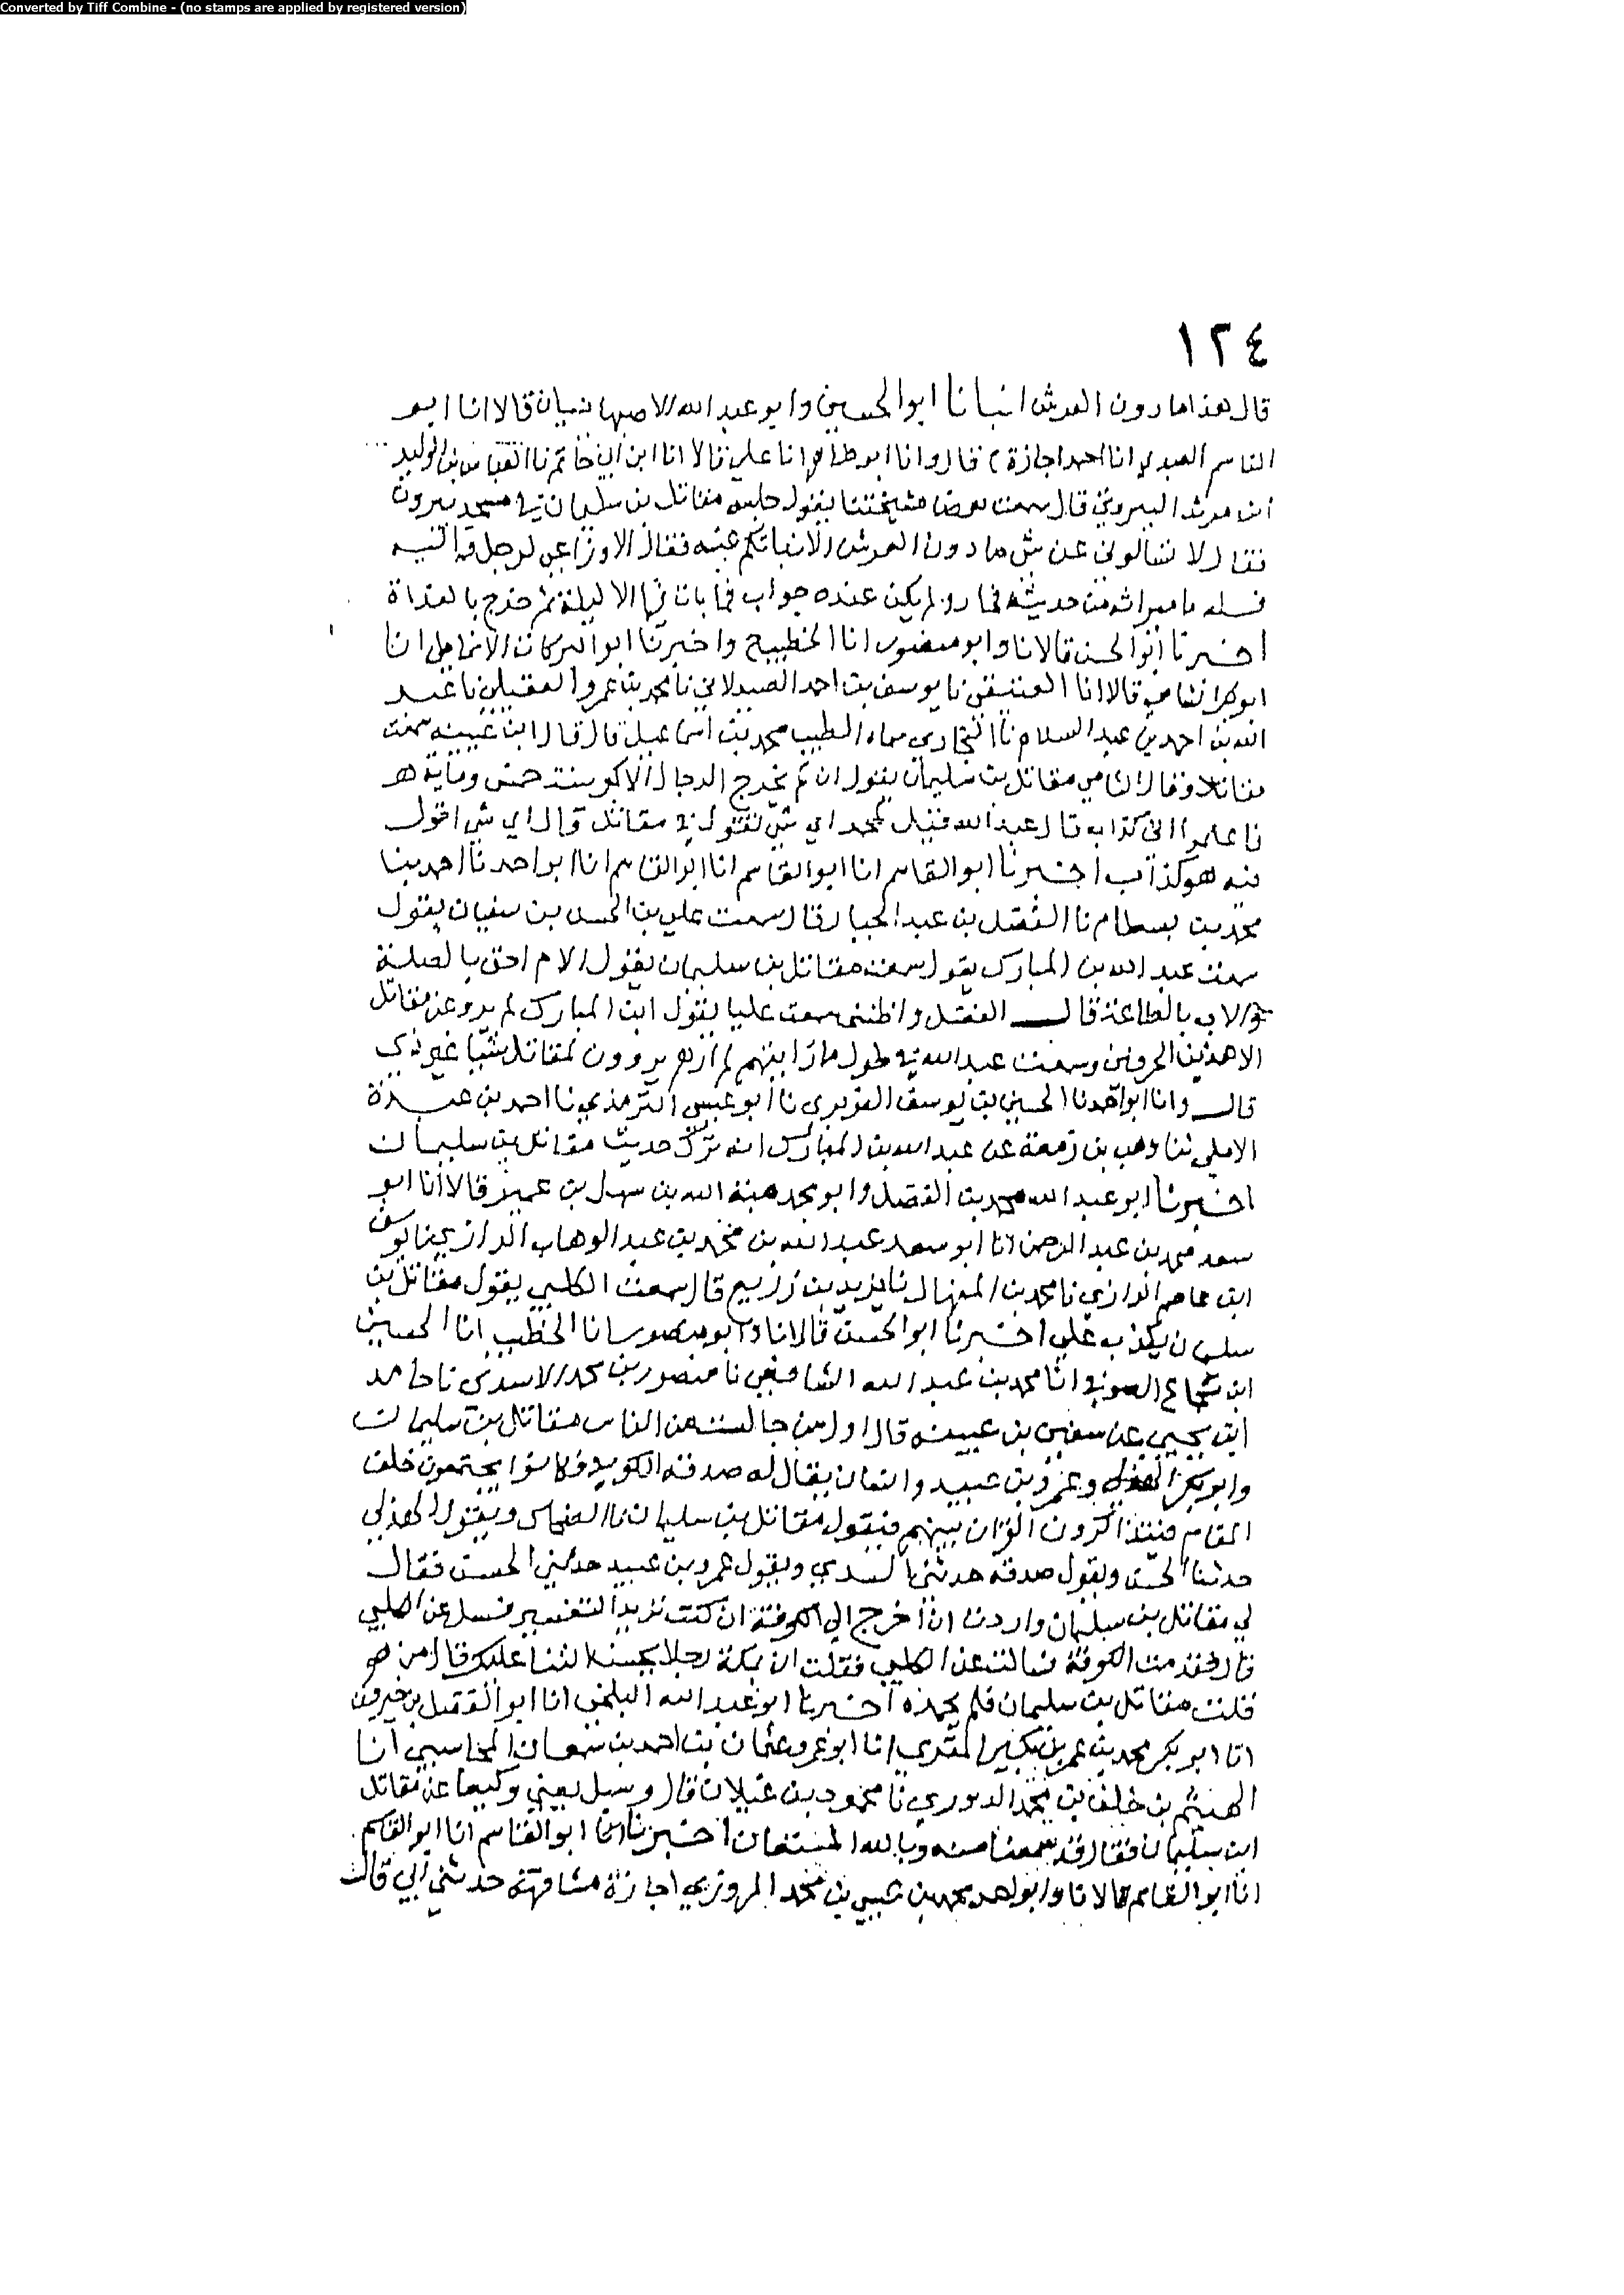 Converted by Tiff Combine - (no stamps are applied by registered version)
١٢٤
قال هذا ما دون العرش انبانا ابو الحسين وابو عبد الله الاصبهانيان قالا انا ابو
القاسم العبدي انا احمد اجازة قال وانا ابو طاهر انا علي قالا انا ابن ابي حاتم نا العباس بن الوليد
ابن مرثد البيروتي قال سمعت بعض مشيختنا يقول جلس مقاتل بن سليمان في مسجد بيروت
فقال لا تسالوني عن شي ما دون العرش الا انباتكم عنه فقال الاوزاعي لرجل قم اليه
فسله ما ميراثه من جدتيه فحار ولم يكن عنده جواب فما بات فيها الا ليلة ثم خرج بالغداة
اخبرنا ابو الحسن قالا نا وابو منصور انا الخطيب واخبرنا ابو البركات الانماطي انا
ابو بكر الشامي قالا انا العتيقي نا يوسف بن احمد الصيدلاني نا محمد بن عمرو العقيلي نا عبد
الله بن احمد بن عبد السلام نا البخاري سماه الخطيب محمد بن اسماعيل قال قال ابن عيينه سمعت
مقاتلا وقال الشامي مقاتل بن سليمان يقول ان لم يخرج الدجال الاكبر سنة خمس ومايه
فاعلموا اني كذاب قال عبد الله فقيل لمحمد اي شي تقول في مقاتل قال اي شي اقول
فيه هو كذاب اخبرنا ابو القاسم انا ابو القاسم انا ابو القاسم انا ابو احمد نا احمد بن
محمد بن بسطام نا الفضل بن عبد الجبار قال سمعت علي بن الحسن بن سفيان يقول
سمعت عبد الله بن المبارك يقول سمعت مقاتل بن سليمان يقول الام احق بالصلة
والاب بالطاعة قال الفضل واظنني سمعت عليا يقول ابن المبارك لم يرو عن مقاتل
الا هذين الحرفين وسمعت عبد الله في طول ما رايتهم لم ارهم يروون لمقاتل شيا غير ذي
قال وانا ابو احمد نا الحسين بن يوسف الفربري نا ابو عيسى الترمذي نا احمد بن عبدة
الاملي ثنا وهب بن زمعة عن عبد الله بن المبارك انه ترك حديث مقاتل بن سليمان
اخبرنا ابو عبد الله محمد بن الفضل وابو محمد هبة الله بن سهل بن عمر قالا انا ابو
سعد محمد بن عبد الرحمن انا ابو سعد عبد الله بن محمد بن عبد الوهاب الرازي نا يوسف
ابن عاصم الرازي نا محمد بن المنهال نا يزيد بن زريع قال سمعت الكلبي يقول مقاتل بن
سليمان يكذب علي اخبرنا ابو الحسن قالا نا وابو منصور انا الخطيب انا الحسين
ابن شجاع الصوفي انا محمد بن عبد الله الشافعي نا منصور بن محمد الاسدي نا حامد
ابن يحيى عن سفين بن عيينه قال اول من جالست من الناس مقاتل بن سليمان
وابو بكر الهذلي وعمرو بن عبيد وانسان يقال له صدقه الكوفي وكانوا يجتمعون خلف
المقام فيتذاكرون القران بينهم فيقول مقاتل بن سليمان نا الضحاك ويقول الهذلي
حدثنا الحسن ويقول صدقه حدثني السدي ويقول عمرو بن عبيد حدثني الحسن فقال
لي مقاتل بن سليمان واردت ان اخرج الى الكوفة ان كنت تريد التفسير فسل عن الكلبي
قال فقدمت الكوفة فسالت عن الكلبي فقلت ان بمكة رجلا يحسن الثنا عليك قال من هو
قلت مقاتل بن سليمان فلم يحمده اخبرنا ابو عبد الله البلخي انا ابو الفضل بن خيرون
انا ابو بكر محمد بن عمر بن بكير المقري انا ابو عمرو عثمان بن احمد بن سمعان المجاشي انا
الهيثم بن خلف بن محمد الدوري نا محمود بن غيلان قال وسيل يعني وكيعا عن مقاتل
ابن سليمان فقال قد سمعنا منه وبالله المستعان اخبرنا ابو القاسم انا ابو القاسم
انا ابو القاسم قالا نا وابو احمد محمد بن عيسى بن محمد المروزي اجازة مشافهة حدثني ابي قال